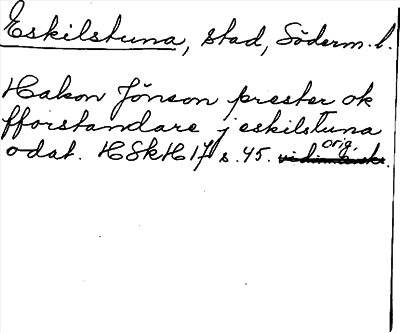 Eskilstuna, stad, Söderm. l.
Hakon Jönson prester ok
fforstandare j eskilstuna
orig.
odat. HSkH 17 s. 45.